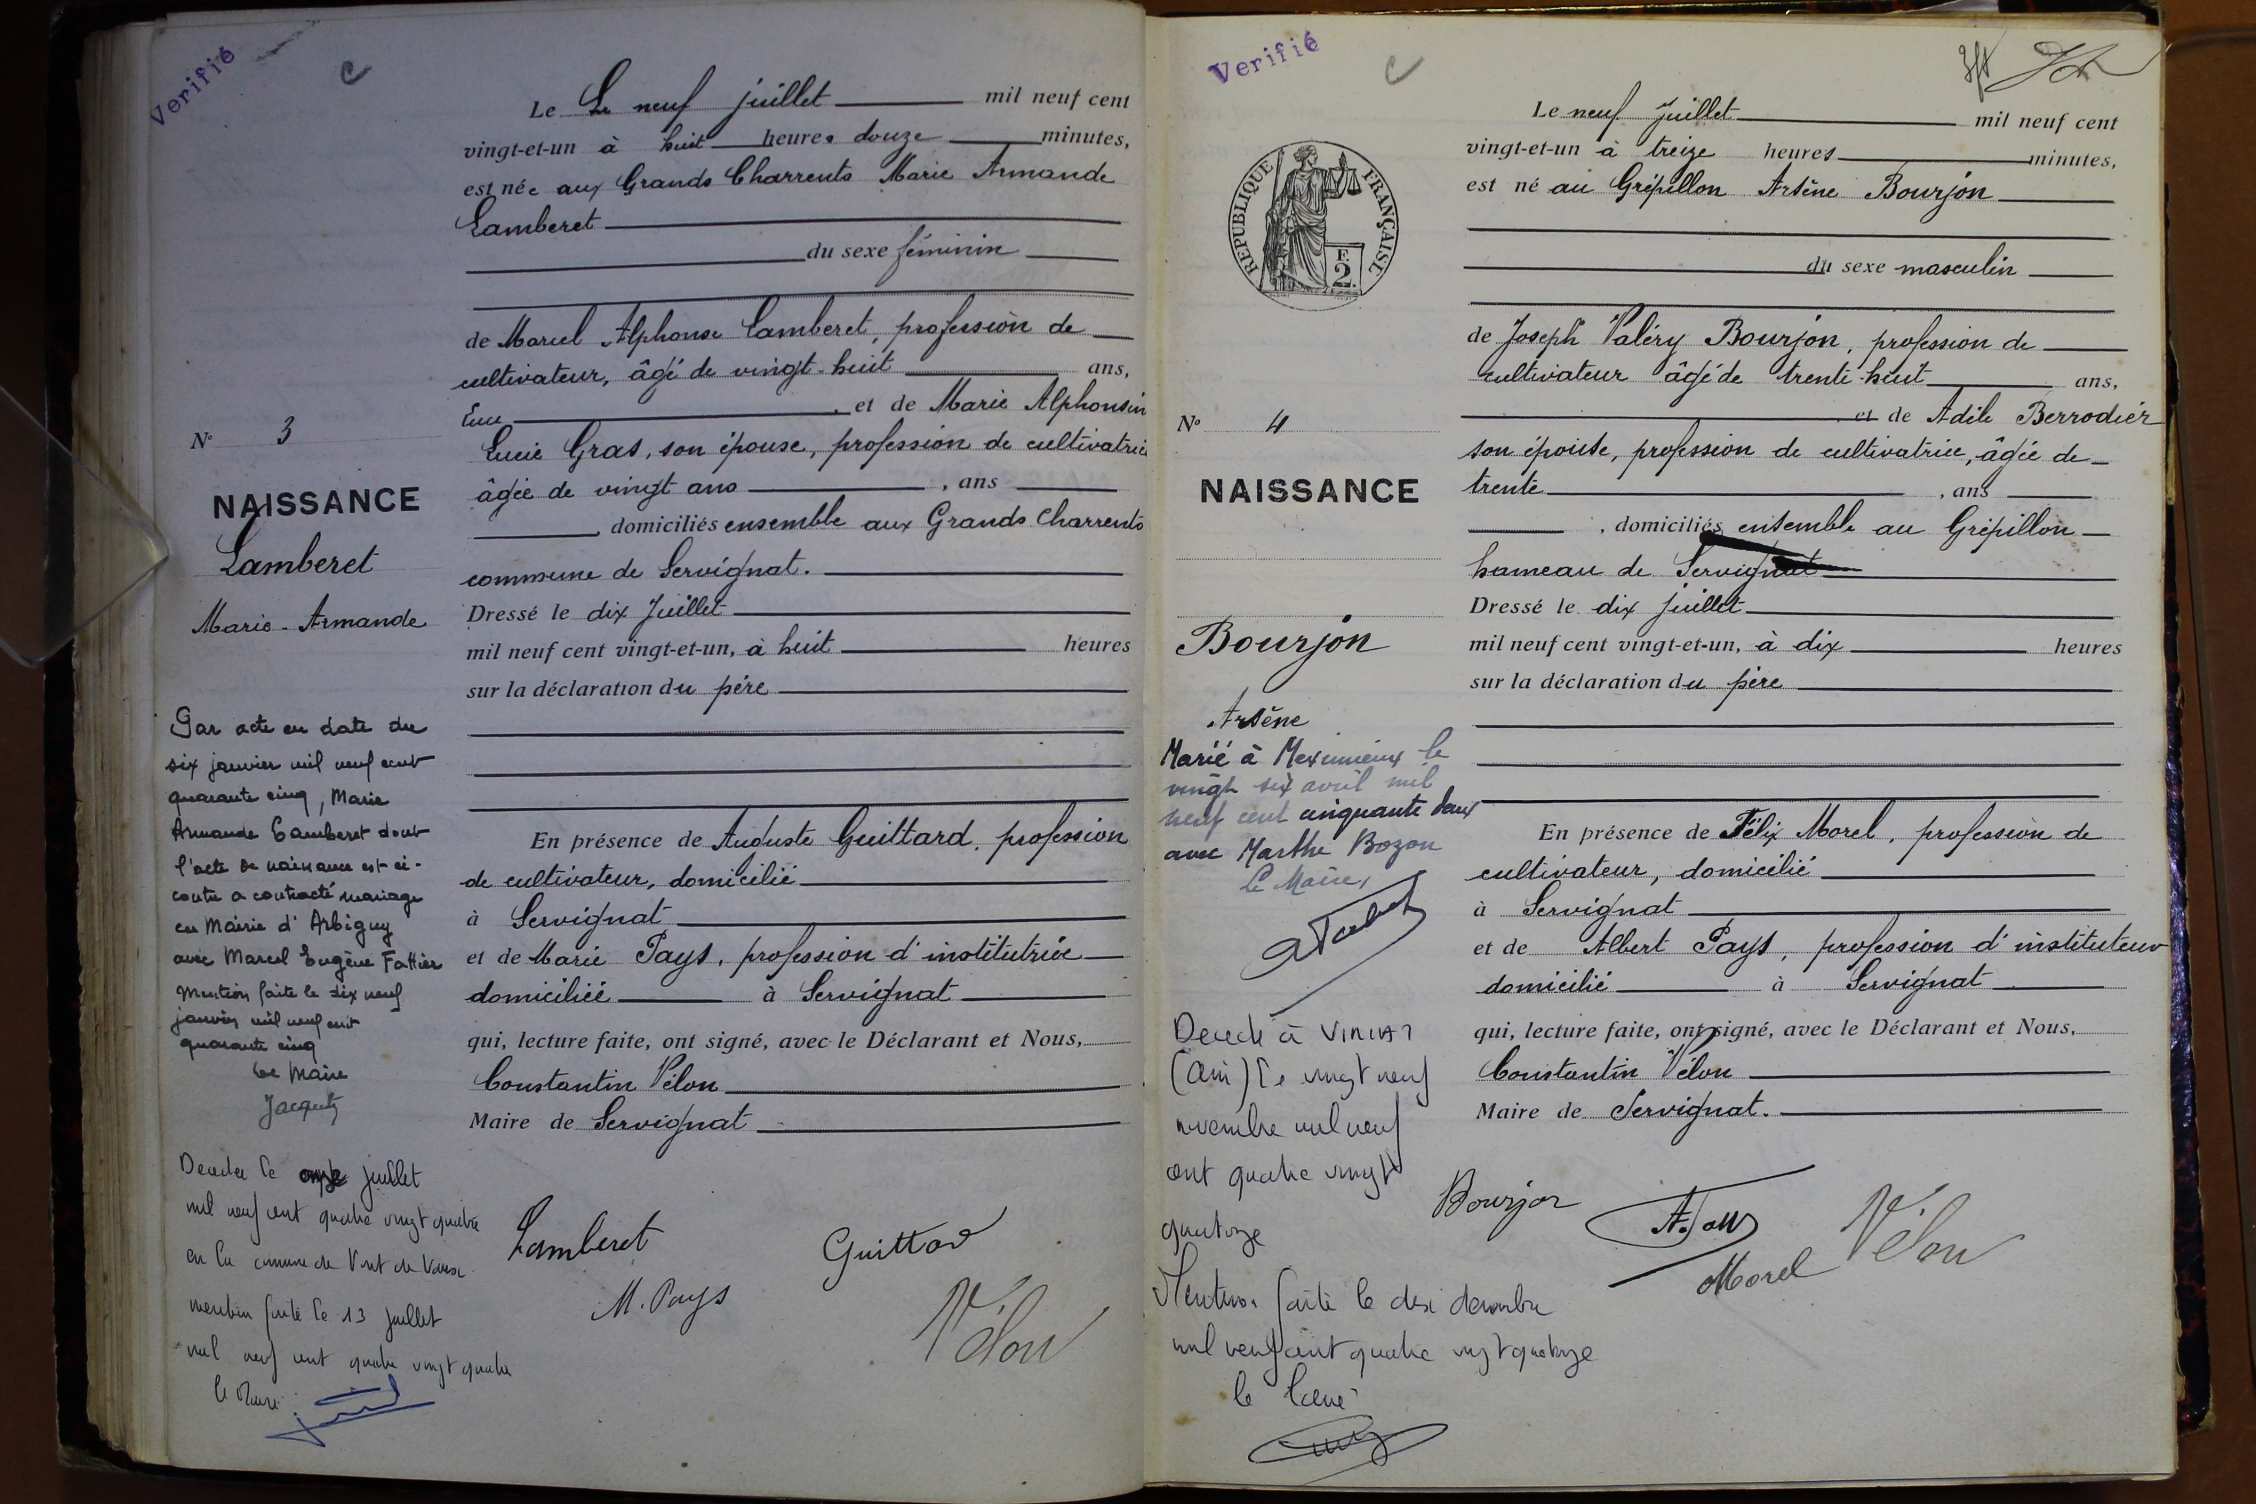 Verifié
c
Le Le neuf juillet mil neuf cent
vingt-et-un à huit heures douze minutes,
est née aux Grands Charrents Marie Armande
Lamberet
du sexe féminin
de Marcel Alphonse Lamberet, profession de
cultivateur, âgé de vingt-huit ans,
et de Marie Alphonsin
Lucie Gras, son épouse, profession de cultivatrice
âgée de vingt ans , ans
domiciliés ensemble aux Grands Charrents
commune de Servignat.
Dressé le dix Juillet
mil neuf cent vingt-et-un, à huit heures
sur la déclaration du père
En présence de Auguste Guittard, profession
de cultivateur, domicilié
à Servignat
et de Marie Pays, profession d'institutrice
domiciliée à Servignat
qui, lecture faite, ont signé, avec le Déclarant et Nous,
Constantin Vélon
Maire de Servignat
Lamberet
Guittard
M. Pays
Vélon
N° 3
NAISSANCE
Lamberet
Marie-Armande
Par acte en date du
six janvier mil neuf cent
quarante cinq, Marie
Armande Lamberet dont
l'acte de naissance est ci-
contre a contracté mariage
en Mairie d'Arbigny
avec Marcel Eugène Fattier
Mention faite le dix neuf
janvier mil neuf cent
quarante cinq
Le Maire
Decedee le onze juillet
mil neuf cent quatre vingt quatre
en la commune de
mention faite le 13 juillet
mil neuf cent quatre vingt quatre
le Maire
Verifié
c
Le neuf Juillet mil neuf cent
vingt-et-un à treize heures minutes,
est né au Grépillon Arsène Bourjon
du sexe masculin
de Joseph Valéry Bourjon, profession de
cultivateur âgé de trente-huit ans,
et de Adèle Berrodier
son épouse, profession de cultivatrice, âgée de
trente , ans
, domiciliés ensemble au Grépillon
hameau de Servignat
Dressé le dix juillet
mil neuf cent vingt-et-un, à dix heures
sur la déclaration du père
En présence de Félix Morel, profession de
cultivateur, domicilié
à Servignat
et de Albert Pays, profession d'instituteur
domicilié à Servignat
qui, lecture faite, ont signé, avec le Déclarant et Nous,
Constantin Vélon
Maire de Servignat.
Bourjon
A. Pays
Morel
Vélon
REPUBLIQUE FRANÇAISE
F.
2.
N° 4
NAISSANCE
Bourjon
Arsène
Marié à Meximieux le
vingt six avril mil
neuf cent cinquante deux
avec Marthe Bozon
Le Maire,
Decede à Viriat
(Ain) le vingt neuf
novembre mil neuf
cent quatre vingt
quatorze
Mention faite le dix decembre
mil neuf cent quatre vingt quatorze
le Maire